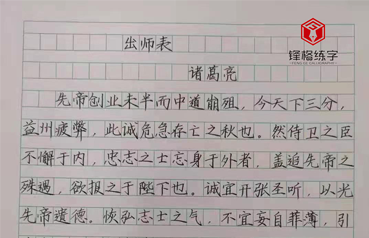 锋格练字
出师表
诸葛亮
先帝创业未半而中道崩殂,今天下三分,
益州疲弊,此诚危急存亡之秋也。然侍卫之臣
不懈于内,忠志之士忘身于外者,盖追先帝之
殊遇,欲报之于陛下也。诚宜开张圣听,以光
先帝遗德。恢弘志士之气,不宜妄自菲薄,引